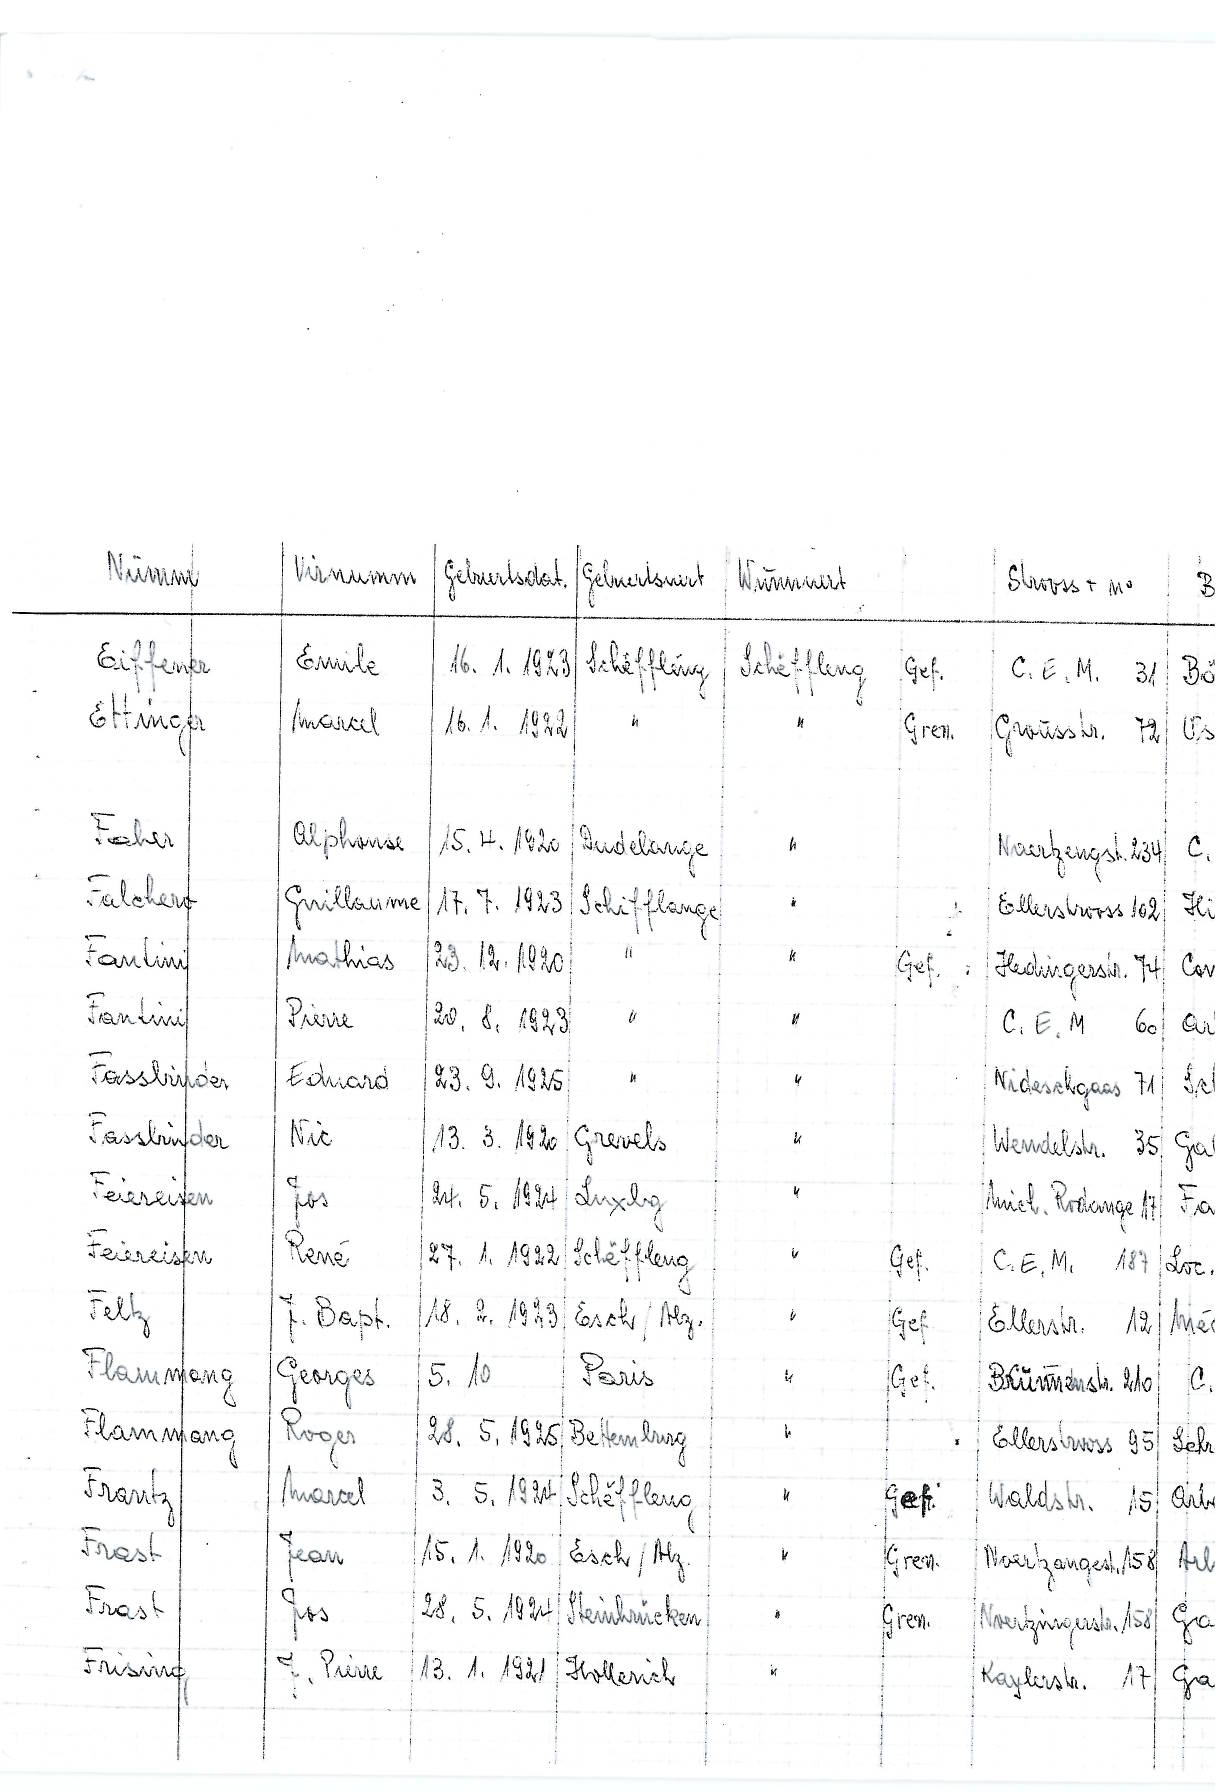 Nümm Virnumm Geburtsdat. Geburtsuert Wunnuert Strooss + No B
Eiffener Emile 16. 1. 1923 Schëffleng Schëffleng Gef. C. E. M. 31 Bö
Ettinger Marcel 16. 1. 1922 " " Gren. Groùsstr. 72
Faher Alphonse 15. 4. 1920 Dudelange " Noertzengst. 234 C.
Falchero Guillaume 17. 7. 1923 Schifflange " Ellerstrooss 102 Hi
Fantini Mathias 23. 12. 1920 " " Gef. Hedingerstr. 74
Fantini Pierre 20. 8. 1923 " " C. E. M 60
Fassbinder Eduard 23. 9. 1925 " " Nideschgaas 71
Fassbinder Nic 13. 3. 1920 Grevels " Wendelstr. 35
Feiereisen Jos 24. 5. 1924 Luxbg " Mich. Rodange 17 Fa
Feiereisen René 27. 1. 1922 Schëffleng " Gef. C. E. M. 187 Loc.
Feltz J. Bapt. 18. 2. 1923 Esch / Alz. " Gef. Ellerstr. 12 Méc
Flammang Georges 5. 10 Paris " Gef. Brünnenstr. 210 C.
Flammang Roger 28. 5. 1925 Bettemburg " Ellerstrooss 95
Frantz Marcel 3. 5. 1924 Schëffleng " Gef. Waldstr. 15 Arb
Frast Jean 15. 1. 1920 Esch / Alz. " Gren. Noertzangest. 158
Frast Jos 28. 5. 1924 Steinbrücken " Gren. Noertzingerstr. 158 Ga
Frising J. Pierre 13. 1. 1921 Hollerich " Kaylerstr. 17 Ga